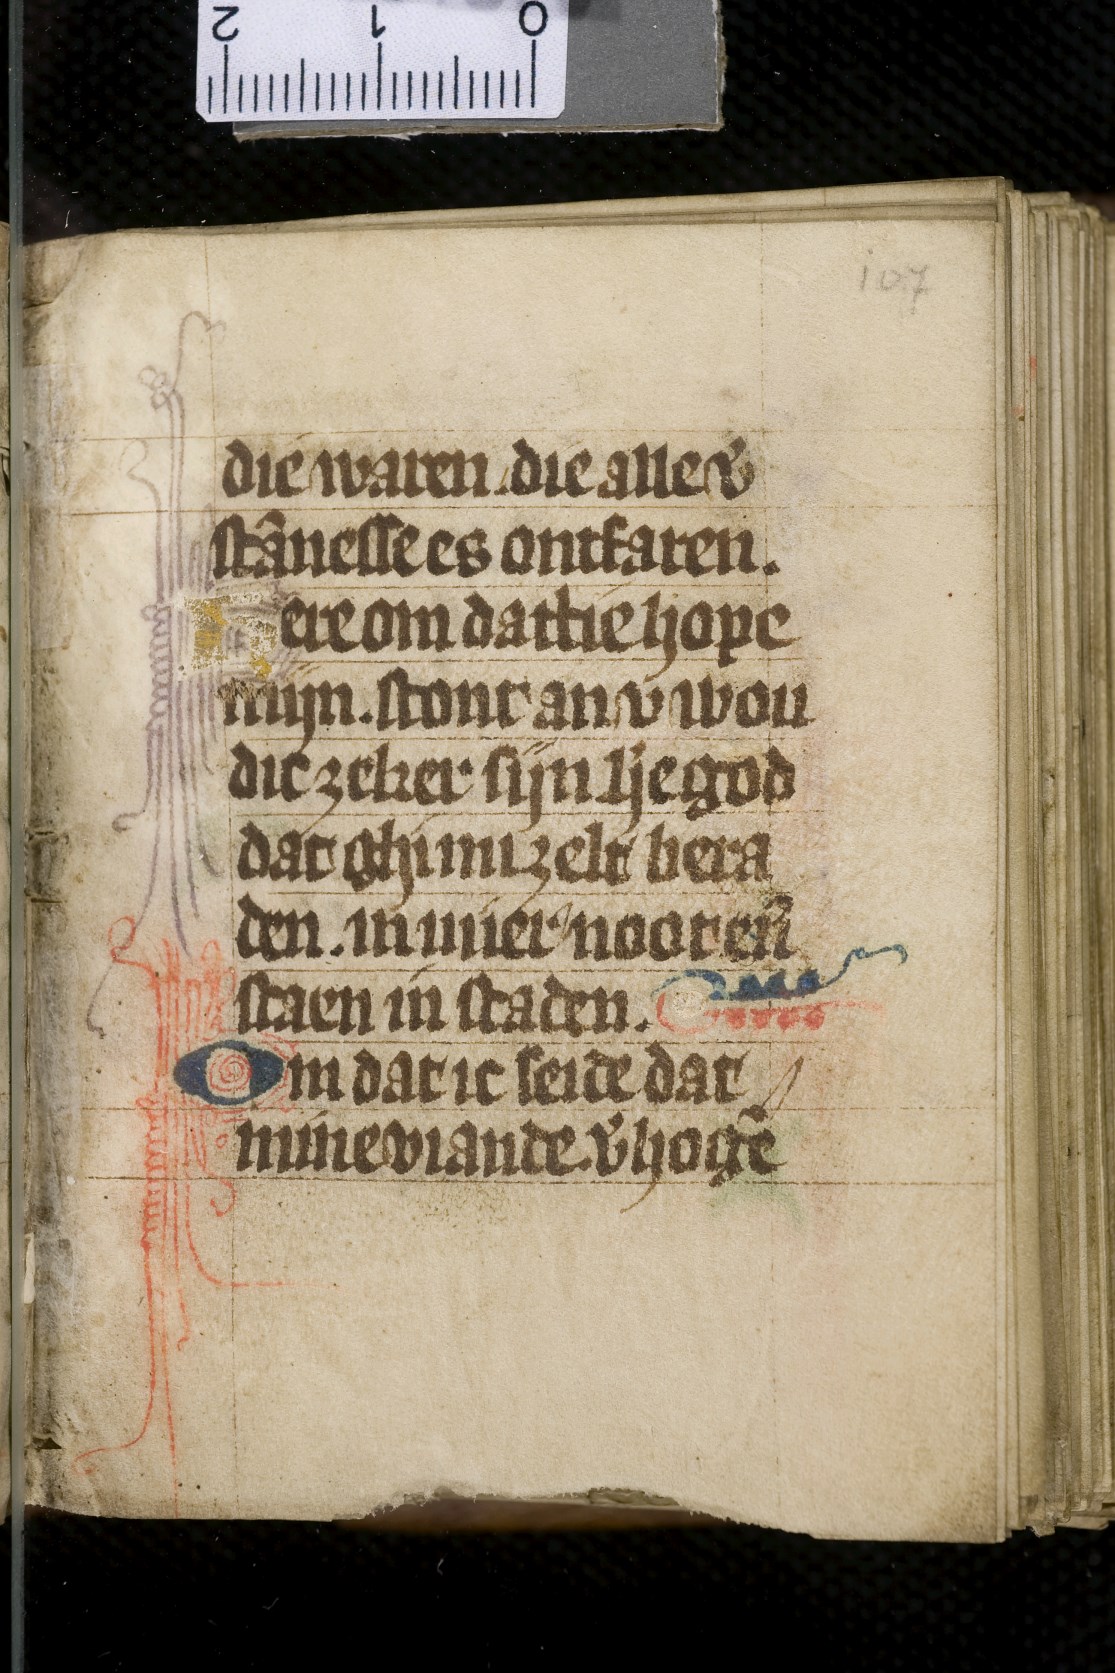 2 1 0
107
die waren. die alle v̄
stānesse es ontfaren.
Here om dattie hope
mijn. stont an v wou
dic zeker sijn h̄e god
dat ghi mi zelt bera
den. in mier noot en̄
staen in staden.
Om dat ic seide dat
mine viande. v̄hogē